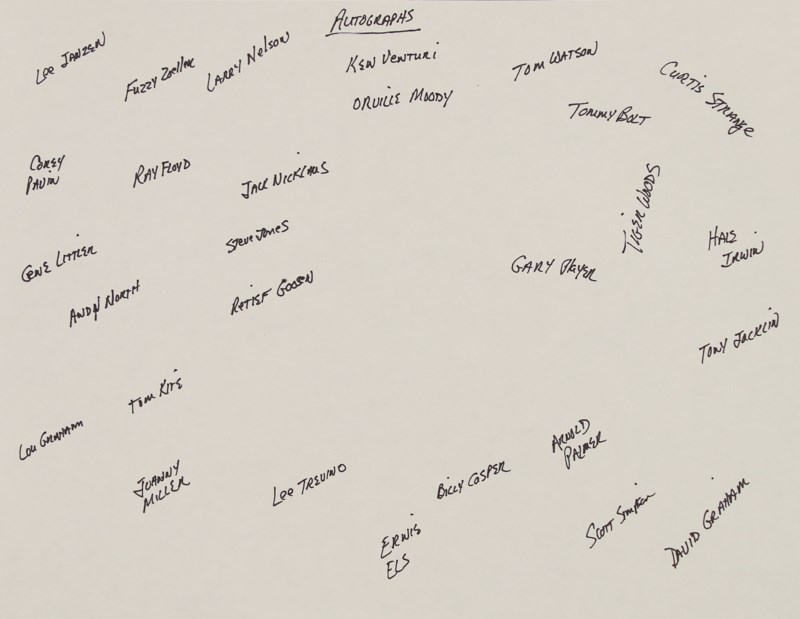 AUTOGRAPHS
LEE JANZEN
FUZZY ZOELLER
LARRY NELSON
KEN VENTURI
ORVILLE MOODY
TOM WATSON
TOMMY BOLT
CURTIS STRANGE
COREY
PAVIN
RAY FLOYD
JACK NICKLAUS
TIGER WOODS
GENE LITTLER
STEVE JONES
GARY PLAYER
HALE
IRWIN
ANDY NORTH
RETIEF GOOSEN
TONY JACKLIN
LOU GRAHAM
TOM KITE
JOHNNY
MILLER
LEE TREVINO
BILLY CASPER
ARNOLD
PALMER
ERNIS
ELS
SCOTT SIMPSON
DAVID GRAHAM